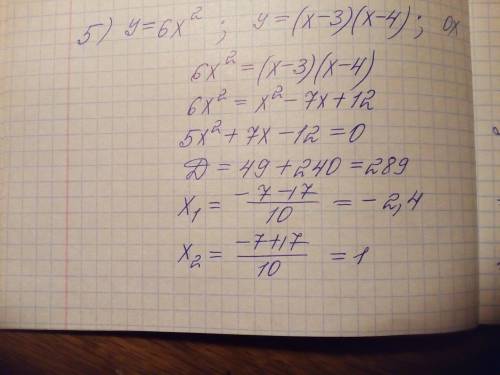 5) y=6x² ; y=(x-3)(x-4); 0x
6x²=(x-3)(x-4)
6x²=x²-7x+12
5x²+7x-12=0
Д=49+240=289
x₁=(-7-17)/10=-2,4
x₂=(-7+17)/10=1